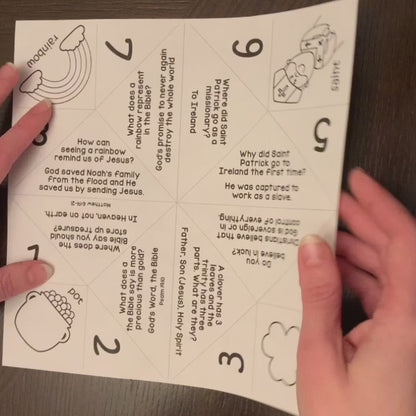 rainbow
7
What does a
rainbow represent
in the Bible?
God's promise to never again
destroy the whole world
6
Where did Saint
Patrick go as a
missionary?
To Ireland
saint
8
How can
seeing a rainbow
remind us of Jesus?
God saved Noah's family
from the Flood and He
saved us by sending Jesus.
5
Why did Saint
Patrick go to
Ireland the first time?
He was captured to
work as a slave.
1
Where does the
Bible say you should
treasure?
In Heaven, not on earth.
Matthew
pot
2
What does
the Bible say is more
precious than gold?
God's Word, the Bible
Psalm 19:10
3
A clover has 3
leaves and the
trinity has three
parts. What are they?
Father, Son (Jesus), Holy Spirit
Do you
believe in luck?
Christians believe that
God is sovereign or in
control of everything.